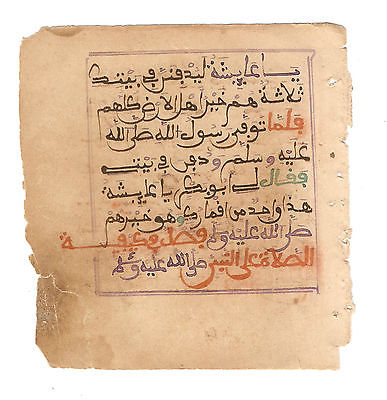 يا عايشة ليدفنن في بيتك
ثلاثة هم خير اهل الارض كلهم
فلما توفي رسول الله صلى الله
عليه وسلم ودفن في بيتي
فقال لي ابو بكر يا عايشة
هذا واحد من اقمارك وهو خيرهم
صلى الله عليه وسلم فصل في كيفية
الصلاة على النبي صلى الله عليه وسلم